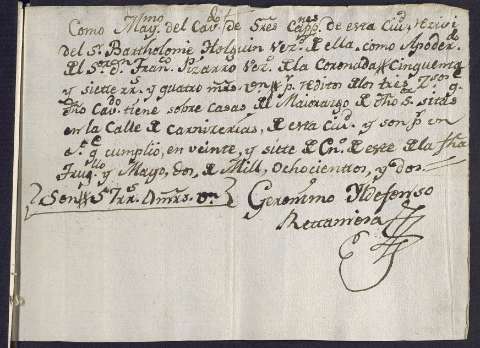 Como May.mo del Cav.do de Sres Capp.nes de esta Ciu.d recivi
del S.r Bartholome Holguin Vez.o de ella, como Apoder.do
del S.r D.n Fran.co Pizarro Vez.o de la Coronada Cinquenta
y siete rr.s y quatro mrs. von p.r reditos de los tres
dho Cav.do tiene sobre Casas del Maiorazgo de dho S.r sitas
en la Calle de Carnizerias, de esta Ciu.d y son p.r un
q.e cumplio, en veinte, y siete de En.o de este de la fha
Trug.llo y Mayo, dos, de Mill, Ochocientos, y dos.
Son 57 rr.s 4 mrs. von
Geronimo Yldefonso
Rettamera